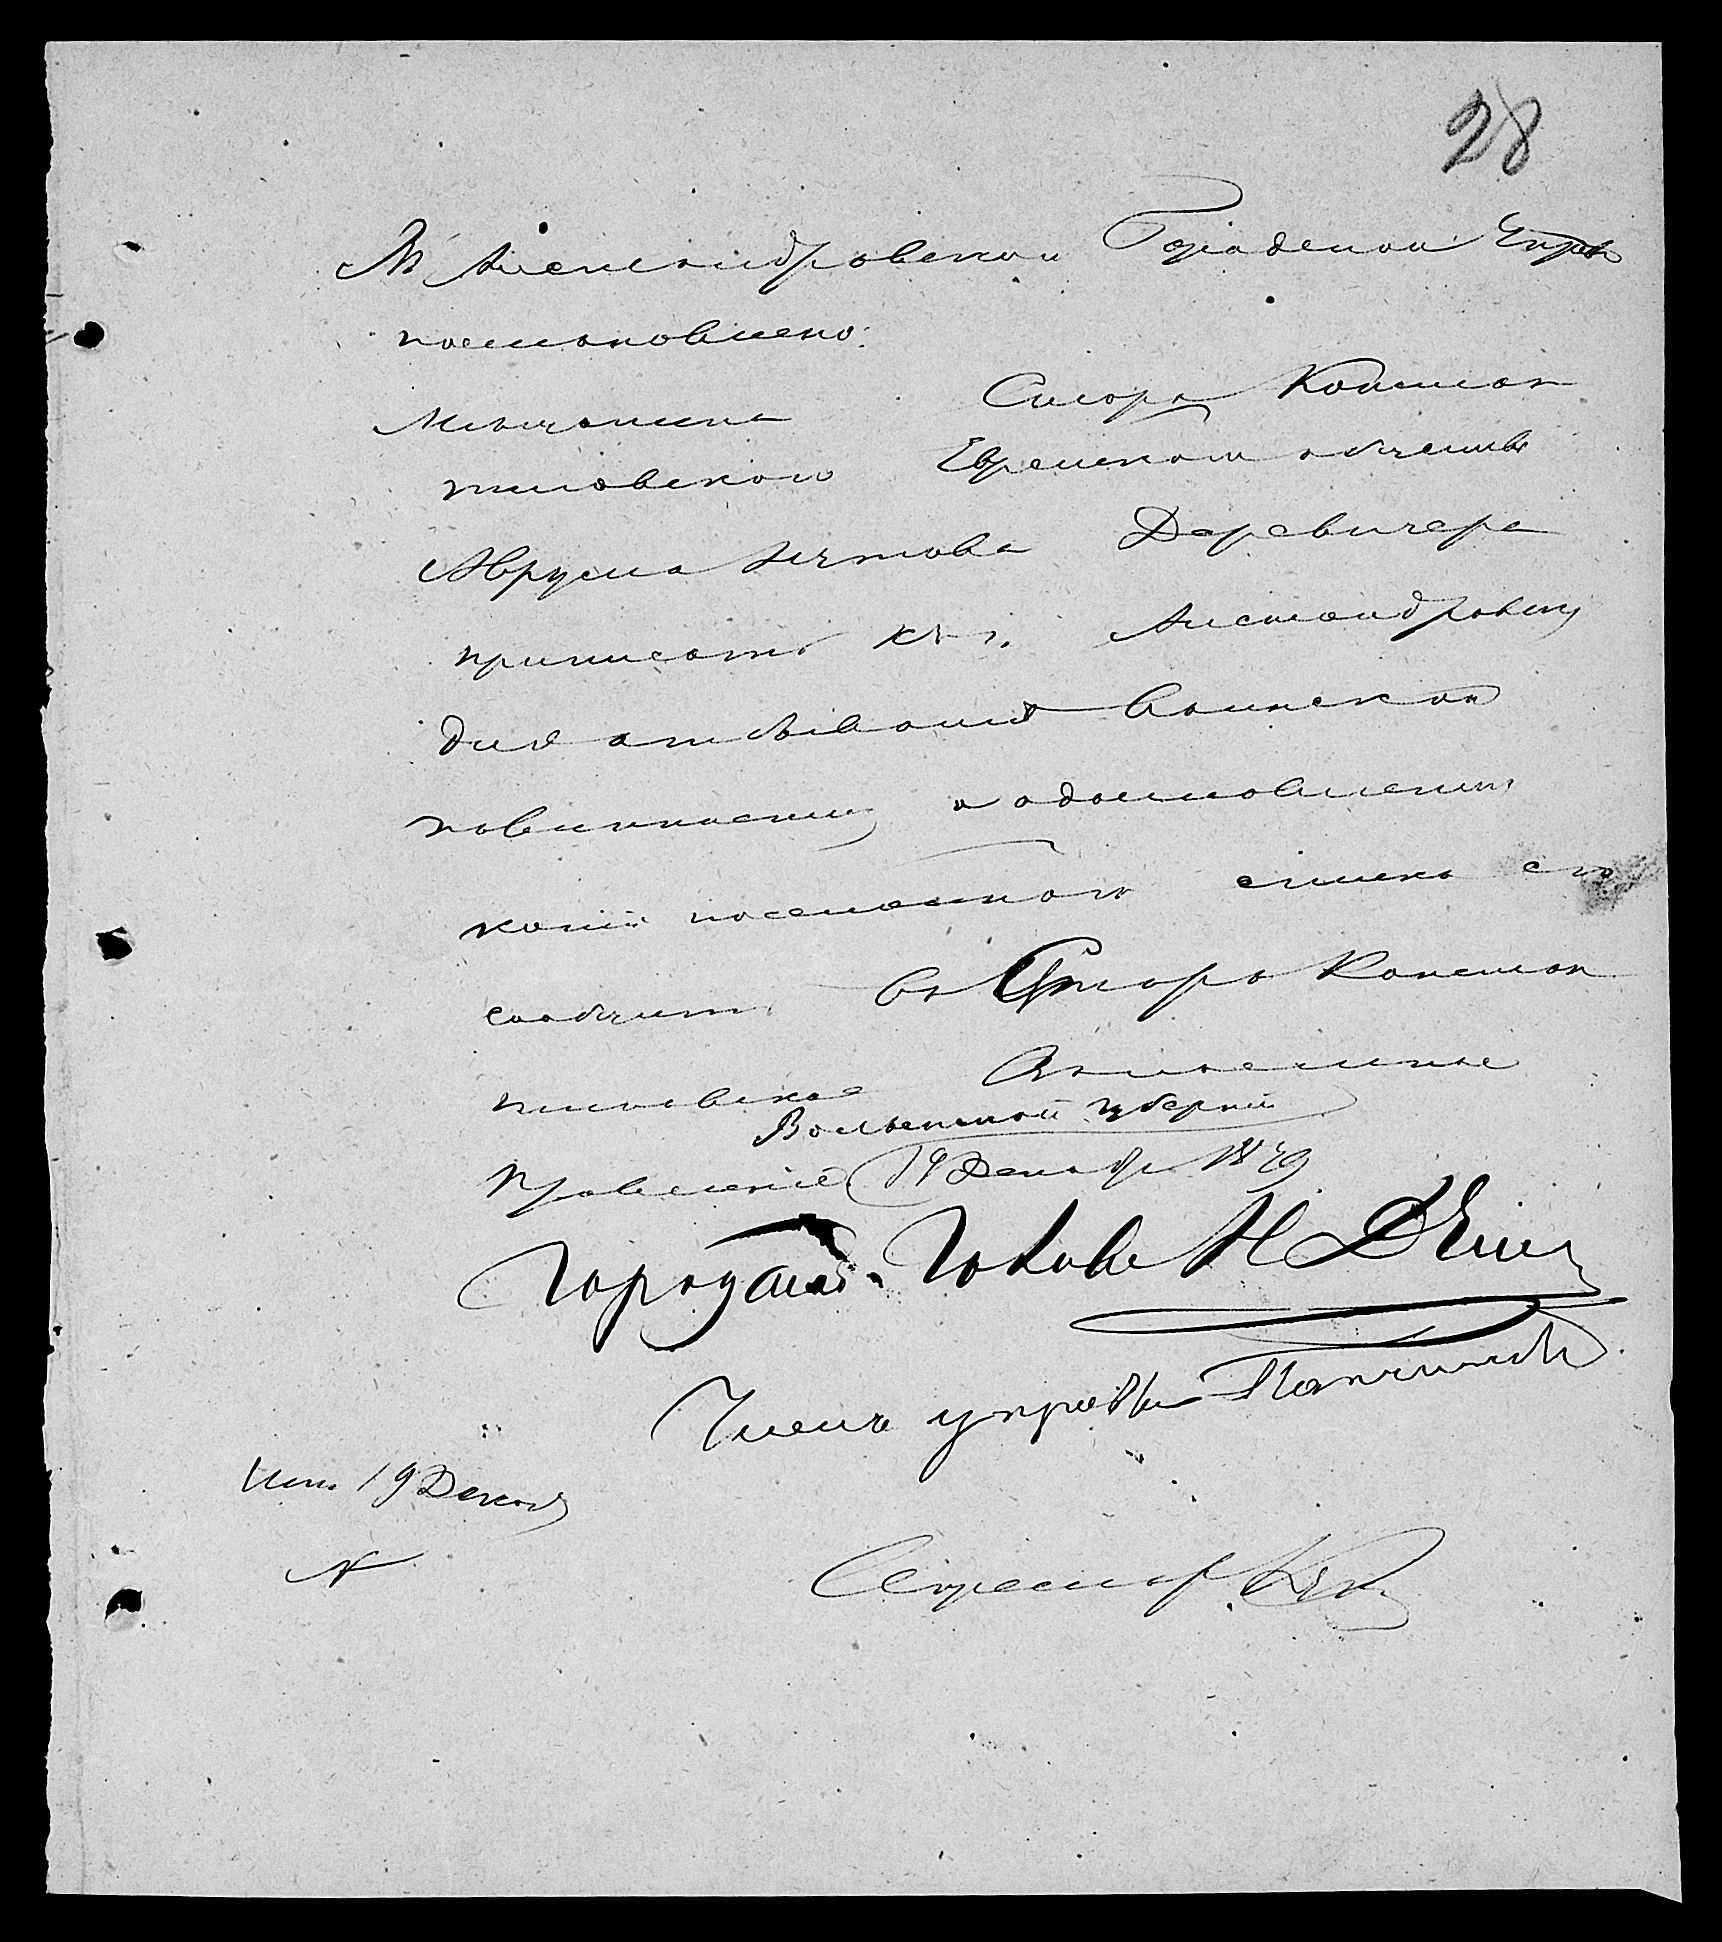 28
Въ Александровской Городской Управѣ
постановлено:
Мѣщанина Старо Констан
тиновскаго Еврейскаго общества
Аврума Ицкова Деревичера
приписать къ г. Александровску
для отбыванія воинской
повинности, о
копіи посемейнаго списка его
сообщить въ Старо Констан
тиновское
Волынской губерніи
Правленіе. 19 Декабр. 1879
Городской Голова Н.
Членъ управы
Исп. 19 Декабр
Секретарь